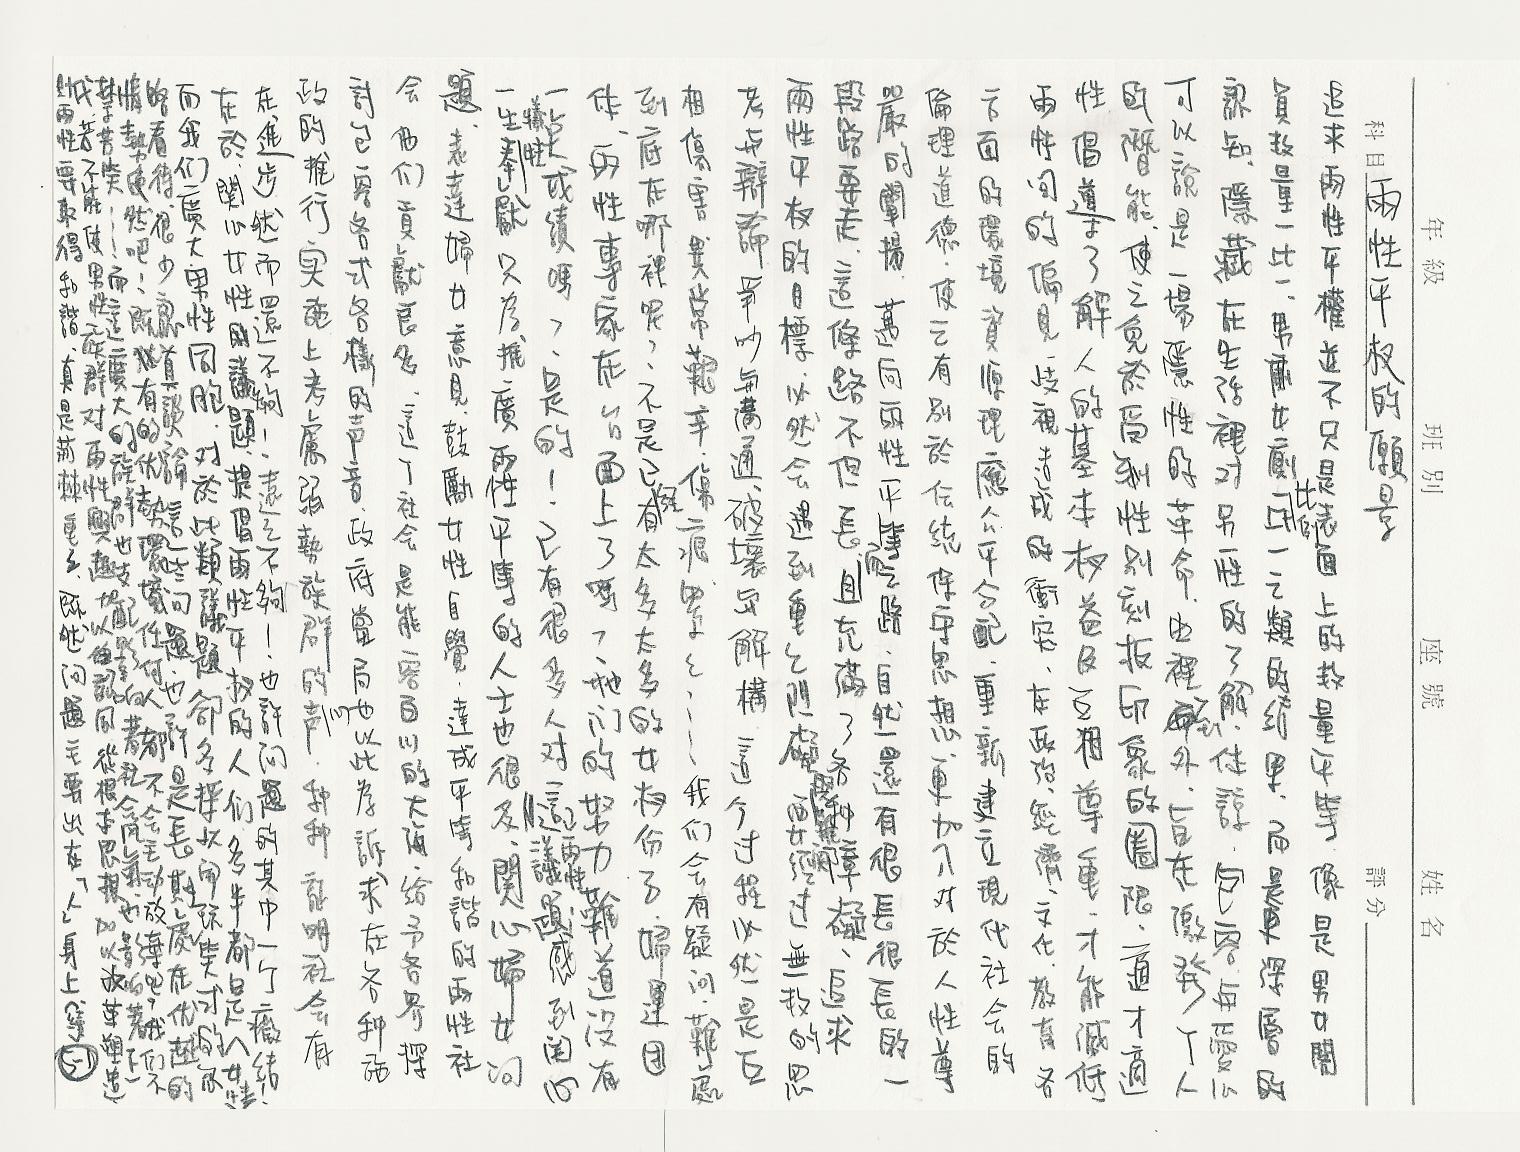 年級 班別 座號 姓名
科目 兩性平权的願景 評分
追求兩性平權並不只是表面上的数量平等、像是男女閣
員数量一比一、男廁女廁比例一比一之類的結果、而是更深層的
認知、隱藏在生活裡对另一性的了解、体諒、包容与愛心
可以說是一場隱性的革命、由裡到外、旨在激發个人
的潛能、使之免於受到性別刻板印象的囿限、適才適
性、倡導了解人的基本权益及互相尊重、才能減低
兩性间的偏見、歧視造成的衝突、在政治、經濟、文化、教育各
方面的環境資源理應公平分配、重新建立現代社会的
倫理道德、使之有别於传統保守思想、更加入对於人性尊
嚴的闡揚、邁向兩性平等之路、自然還有很長很長的一
段路要走、這條路不但長、且充滿了各种障礙、追求
兩性平权的目標、必然会遇到重重阻礙、要經过無数的思
考与辯論、爭吵与溝通、破壞与解構、這个过程必然是互
相傷害、異常艱辛、傷痕累累……我们会有疑问、難處
到底在哪裡呢？不是已經有太多太多的女权份子、婦運团
体、兩性專家在台面上了嗎？她们的努力難道沒有
一些成績嗎？是的！已有很多人对這兩性議題感到関心
一生奉獻犧牲只為推廣兩性平等的人士也很多、関心婦女问
題、表達婦女意見、鼓勵女性自覺、達成平等和諧的兩性社
会、她们貢獻良多、這个社会是能容百川的大海、給予各界探
討已容各式各樣的声音、政府當局也以此為訴求在各种施
政的推行实施上考慮弱勢族群的声、种种說明社会有
在進步、然而還不夠！遠遠不夠！也許问題的其中一个癥結！
在於、関心女性的議題、提倡兩性平权的人们多半都是女性
而我们廣大男性同胞、对於此類議題卻多採以開玩笑式的
略看待、很少認真談論這些问題、也許是長期處在优越的
情勢使然吧！既然有的优勢環境任何人都不会主動放棄吧？我们不
禁苦笑……而這廣大的族群也支配影响著社会風氣也影响著下一
代、若不能使男性族群对兩性興趣加以認同從根本思想加以改革塑造
則兩性要取得和諧真是荊棘重重、既然问題主要出在「人」身上 5-1